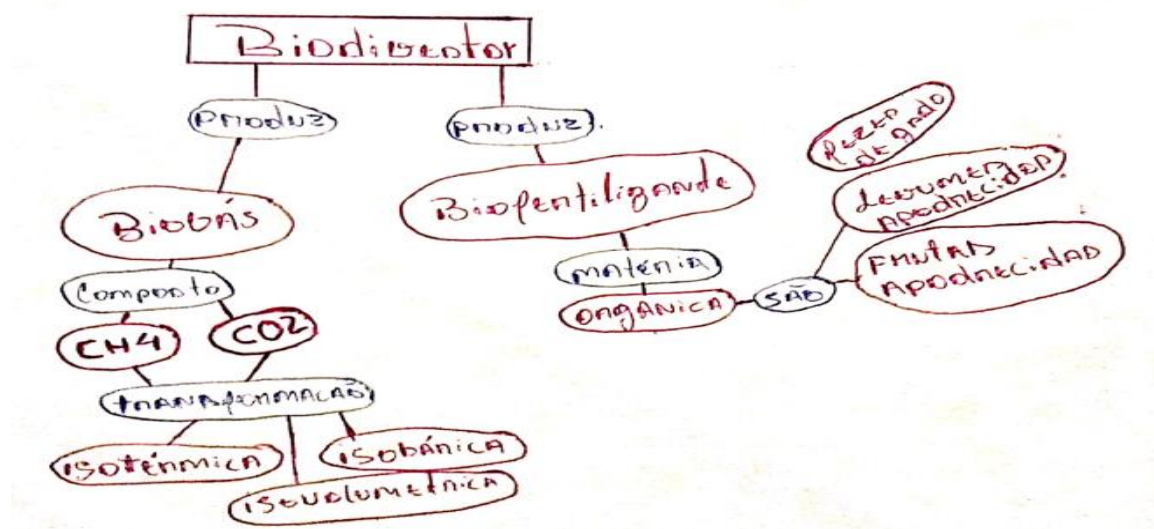 Biodigestor
PRODUZ
PRODUZ.
Biogás
Biofertilizande
Composto
CH4
CO2
transformação
isotérmica
isobárica
isovolumetrica
matéria
orgânica
SÃO
FEZES
DE gADO
Legumes
APODRECIDAS
FRUTAS
APODRECIDAS